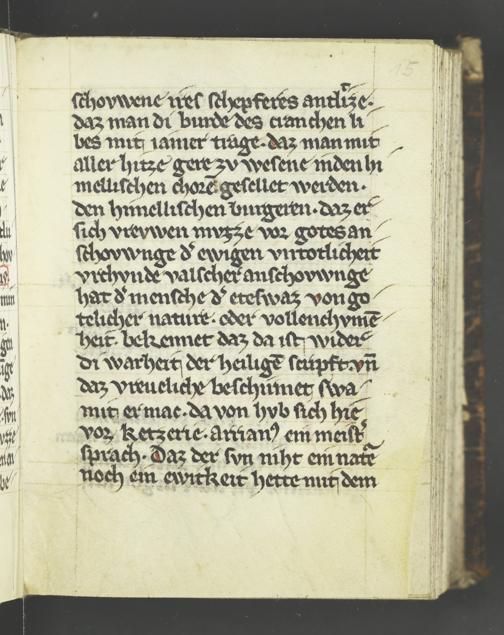 15
schovwene ires schepferes antlize·
daz man di burde des cranchen li
bes mit iamer trage· daz man mit
aller hitze gere zv wesene in den hi
mellischen chorē gesellet werden·
den himellischen burgeren· daz er
sich vrevwen mvzze vor gotes an
schovwnge d' ewigen vntotlicheit
vrchvnde valscher anschovwnge
hat d' mensche d' etefwaz von go
telicher nature· oder vollenchvmē
heit· bekennet daz da ist wider
di warheit der heiligē scripft· vn̄
daz vreueliche beschirmet swa
mit er mac· da von hvb sich hie
vor ketzerie· arrian' ein meist'
sprach· Daz der svn niht ein nate
noch ein ewitkeit hette mit dem